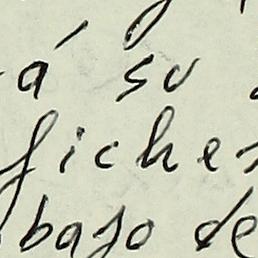 á su
fiche
bajo de